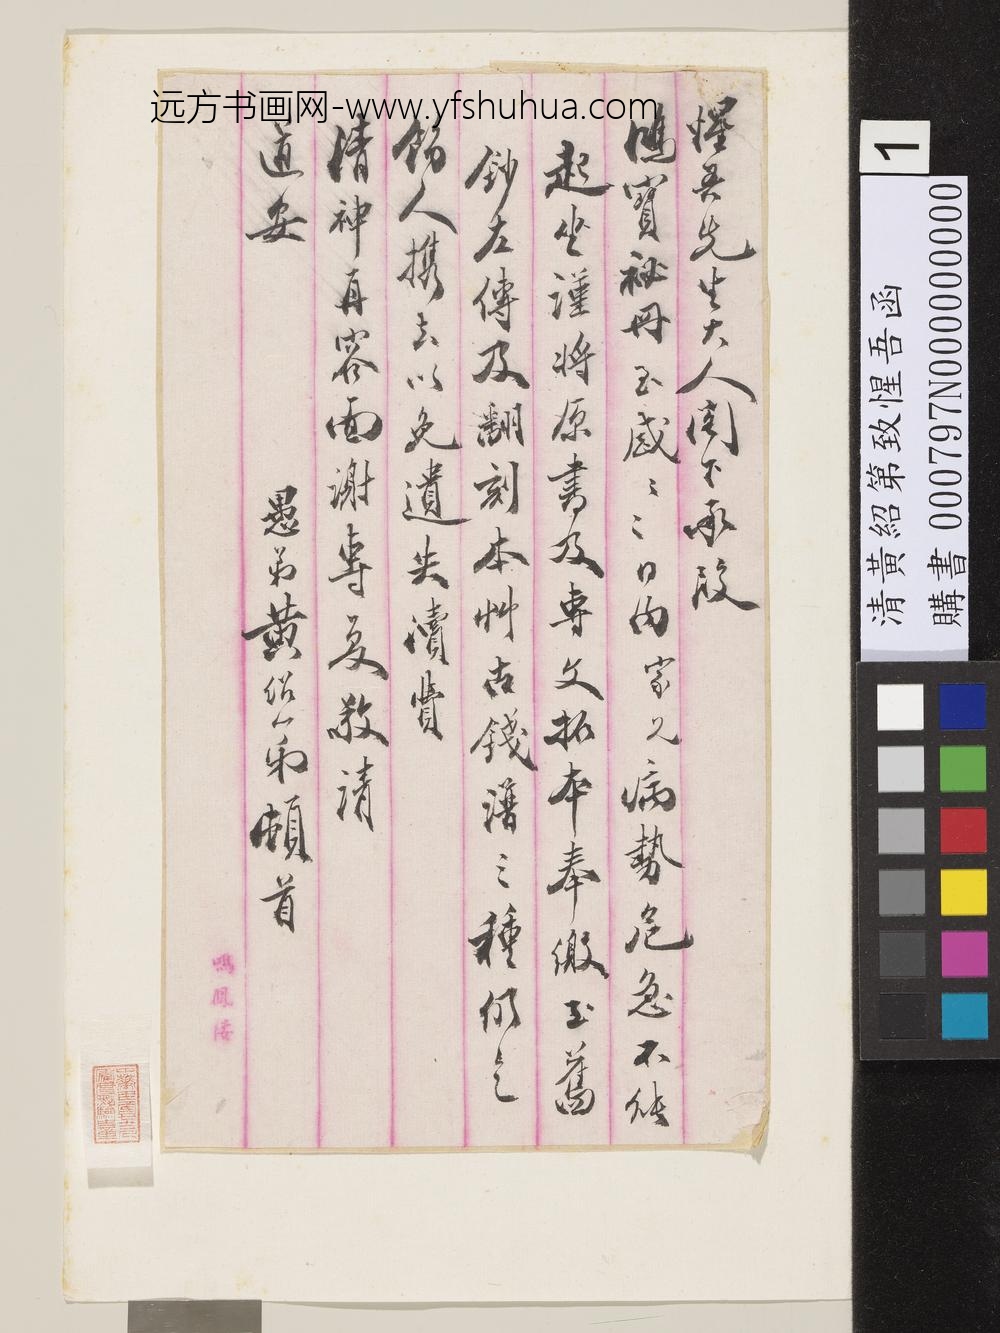 远方书画网-www.yfshuhua.com
惺吾先生大人閣下承假
鴻寶祕册至感〻三日內家兄病勢危急不能
起坐謹將原書及專文拓本奉繳至舊
鈔左傳及翻刻本艸古錢譜三種仍乞
飭人携去以免遺失瀆費
清神再容面謝專复敬請
道安
愚弟黃紹第頓首
鳴鳳樓
1
清黃紹第致惺吾函
購書 000797N000000000